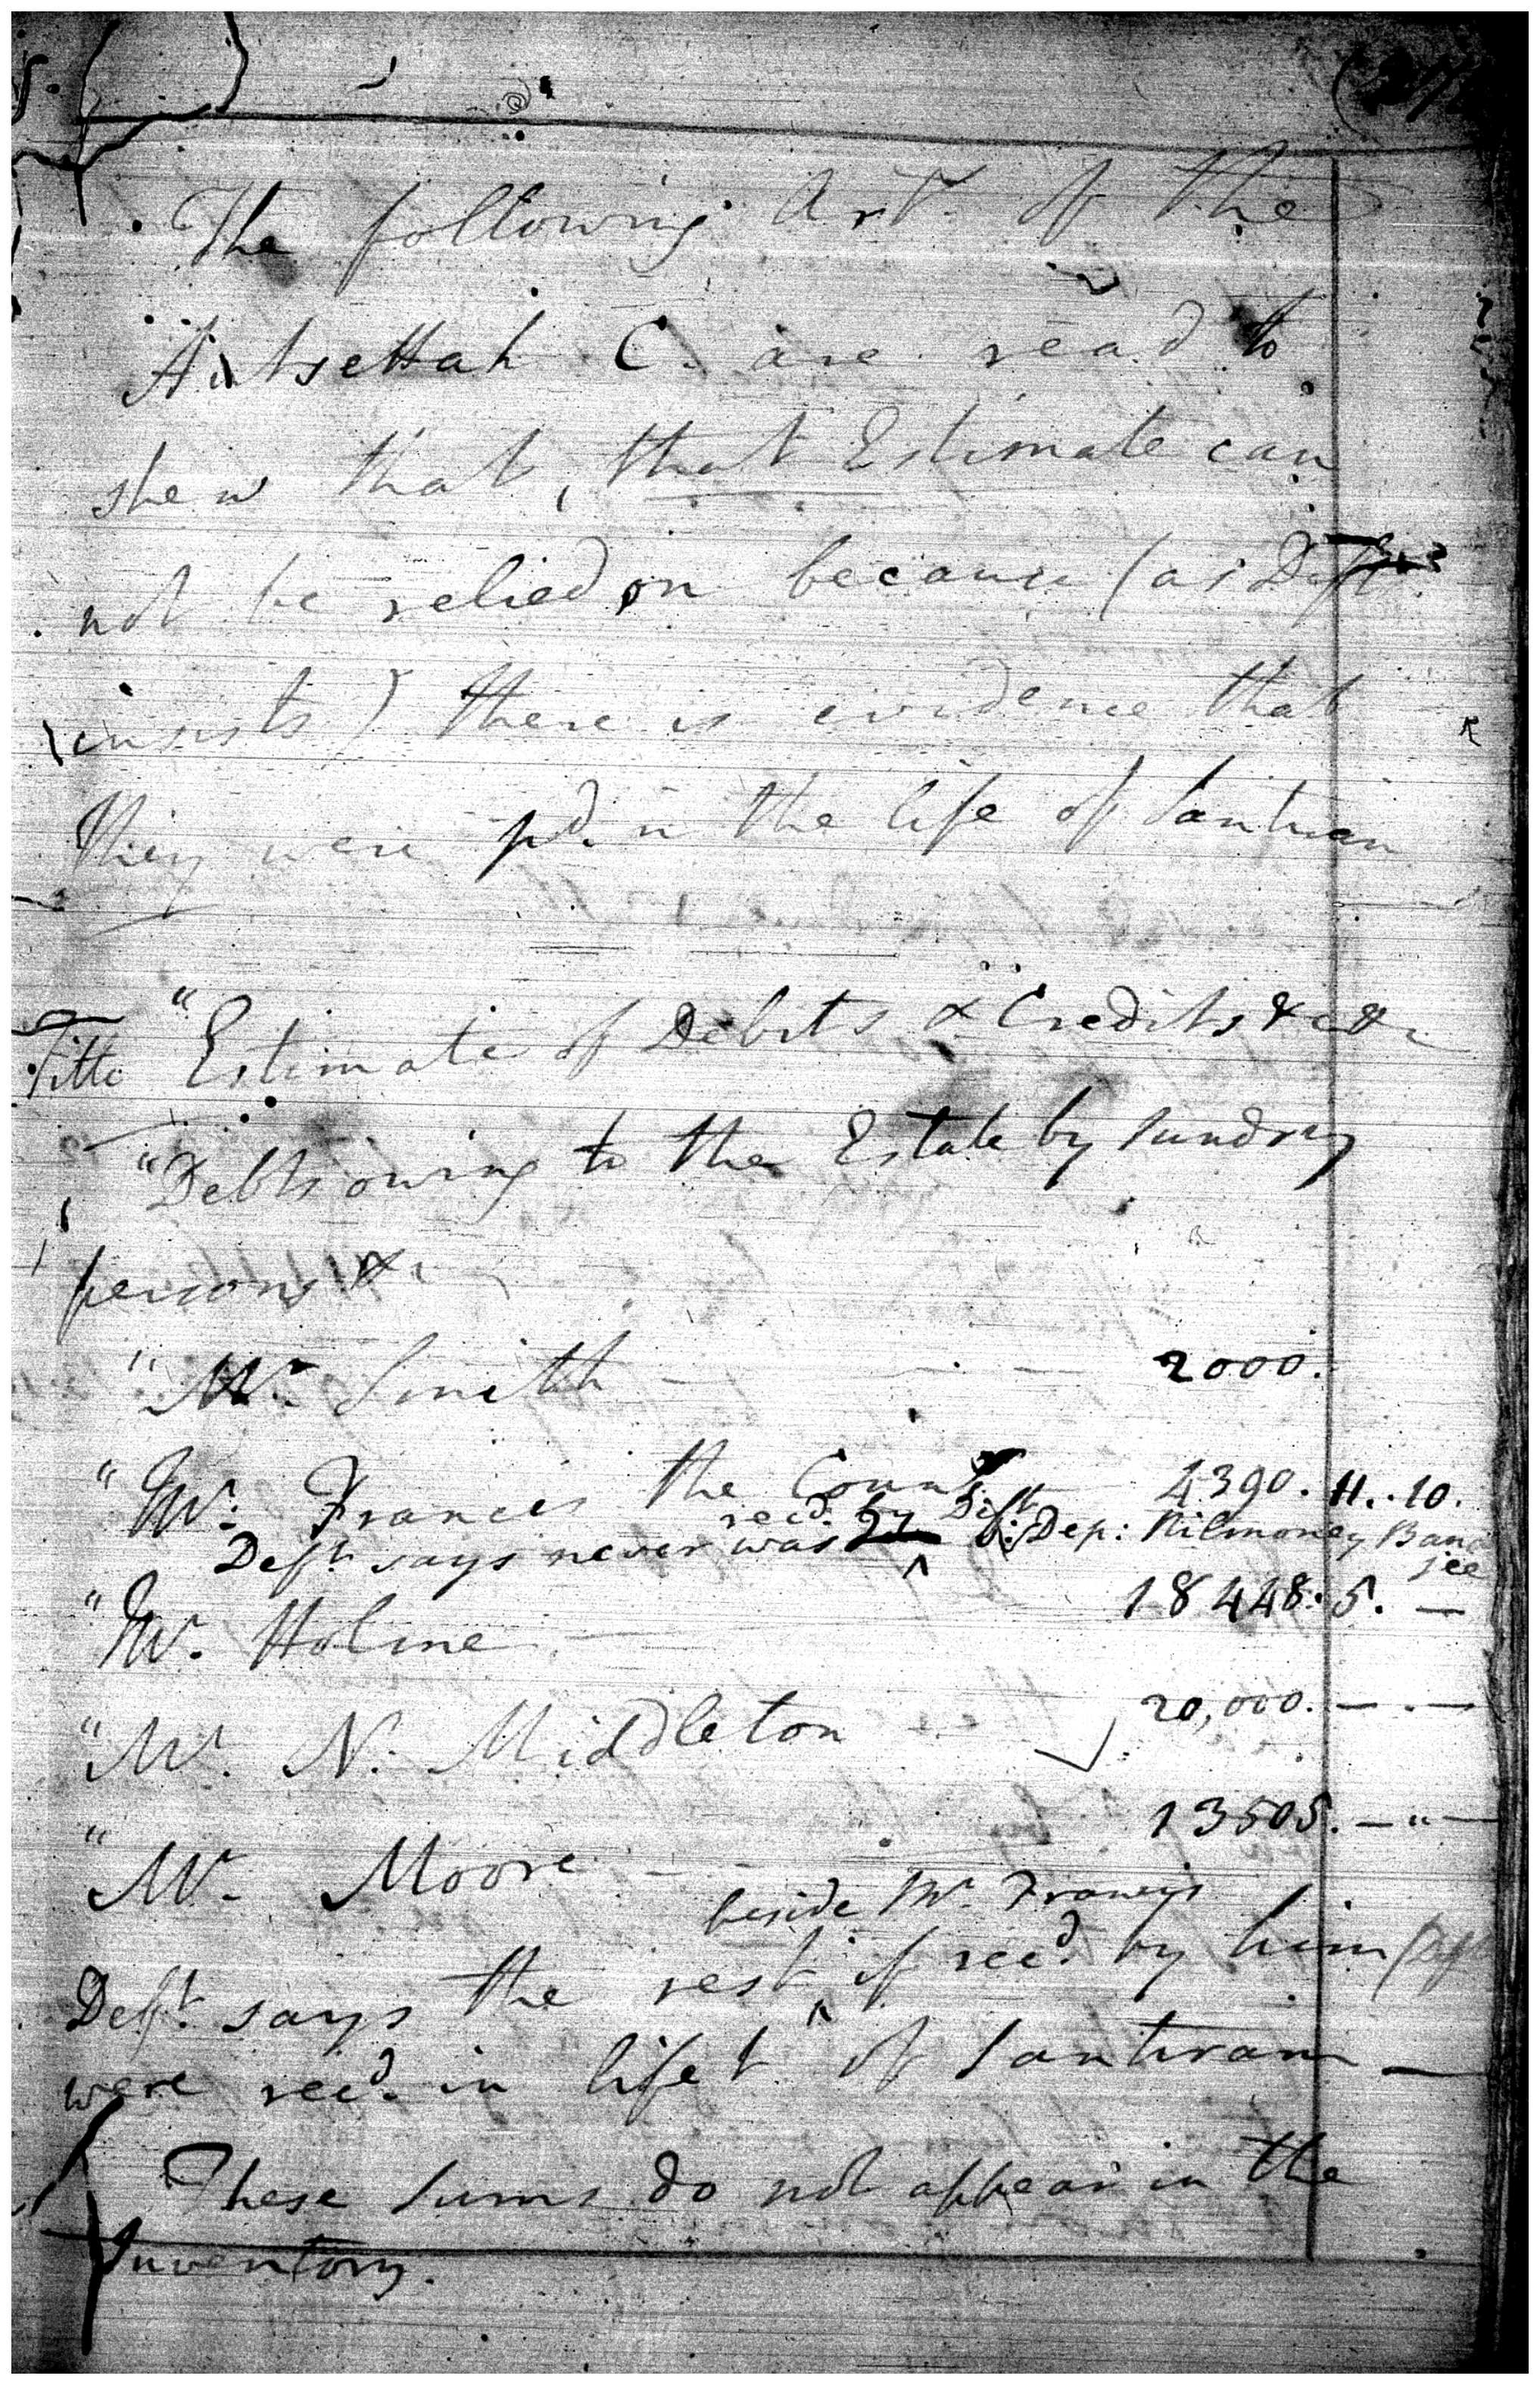 The following Art. of the
C. are read to
shew that, that Estimate can
not be relied on because (as Deft.
insists) there is evidence that
they were pd. in the life of Santiram
Title "Estimate of Debts & Credits &c &c
"Debts owing to the Estate by sundry
persons &c
"Mr. Smith — — 2000.
"Mr. Francis the Couns 4390. 11. 10.
recd. by Deft.
Deft. says never was Dep: Nilmoney Banajee
"Mr. Holme — 18448. 5. —
"Mr. N. Middleton 20,000. — . —
"Mr. Moore — — 13505. — " —
beside Mr. Francis
Deft. says the rest if recd. by him
were recd. in lifet. of Santiram —
These sums do not appear in the
Inventory.